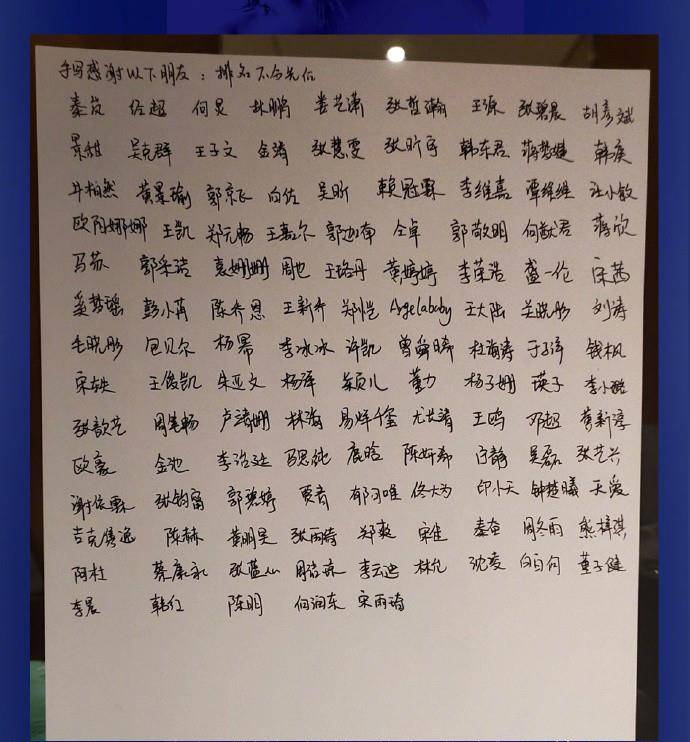 手写感谢以下朋友：排名不分先后
秦岚 任超 何炅 林鹏 娄艺潇 张哲瀚 王源 张碧晨 胡彦斌
景甜 吴克群 王子文 金涛 张慧雯 张昕宇 韩东君 蒋梦婕 韩庚
井柏然 黄景瑜 郭京飞 白佐 吴昕 赖冠霖 李维嘉 谭维维 江小敏
欧阳娜娜 王凯 郑元畅 王嘉尔 仝卓 郭敬明 何猷君 蒋欣
马苏 郭采洁 袁姗姗 周也 王珞丹 黄婷婷 李荣浩 盛一伦 宋茜
奚梦瑶 彭小苒 陈乔恩 王新乔 郑恺 Agelababy 王大陆 关晓彤 刘涛
毛晓彤 包贝尔 杨幂 李冰冰 许凯 曾舜晞 杜海涛 于子洋 钱枫
宋轶 王俊凯 朱亚文 杨洋 颖儿 董力 杨子姗 瑛子 李小璐
张歆艺 周笔畅 卢靖姗 林海 易烊千玺 尤长靖 王鸥 邓超 黄新淳
欧豪 金池 李治廷 马思纯 鹿晗 陈妍希 白静 吴磊 张艺兴
谢依霖 张钧甯 郭碧婷 贾青 郁可唯 佟大为 印小天 钟楚曦 天爱
吉克隽逸 陈赫 黄明昊 张雨绮 郑爽 宋佳 秦奋 周冬雨 熊梓淇
阿杜 蔡康永 张蓝心 周洁琼 李云迪 林允 沈凌 白百何 董子健
李晨 韩红 陈明 何润东 宋雨琦